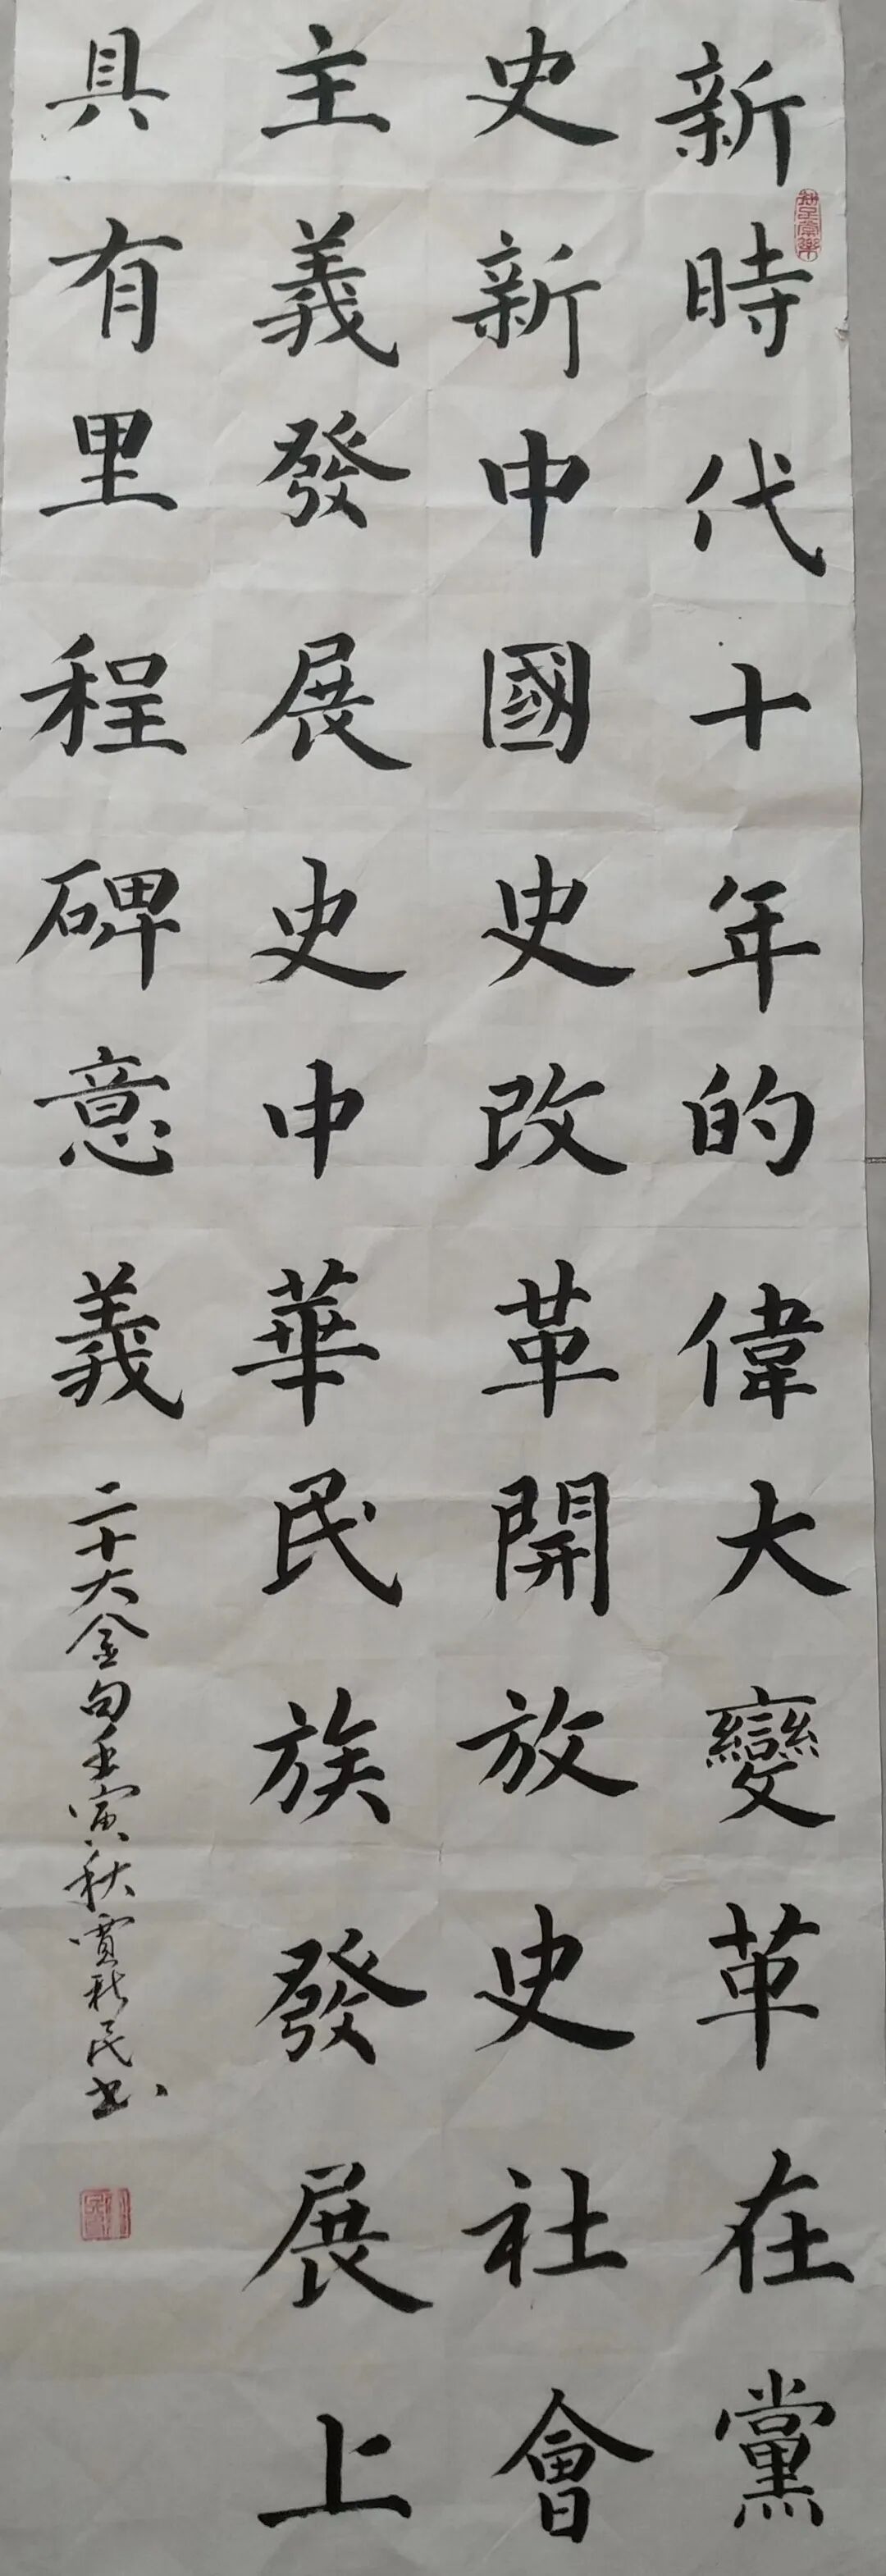 新時代十年的偉大變革在黨
史新中國史改革開放史社會
主義發展史中華民族發展上
具有里程碑意義
二十大金句壬寅秋賈秋民书
知足常樂